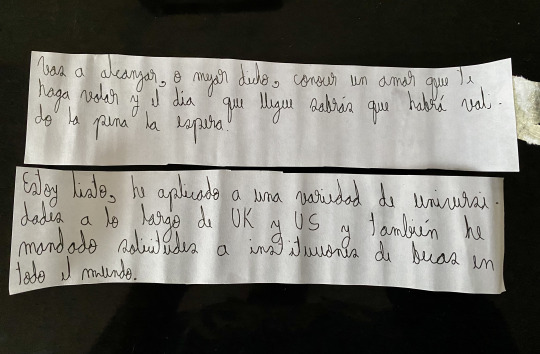 Vas a alcanzar, o mejor dicho, conocer un amor que te
haga volar y el dia que llegue sabrás que habrá vali-
do la pena la espera.
Estoy listo, he aplicado a una variedad de universi-
dades a lo largo de UK y US y también he
mandado solicitudes a instituciones de becas en
todo el mundo.